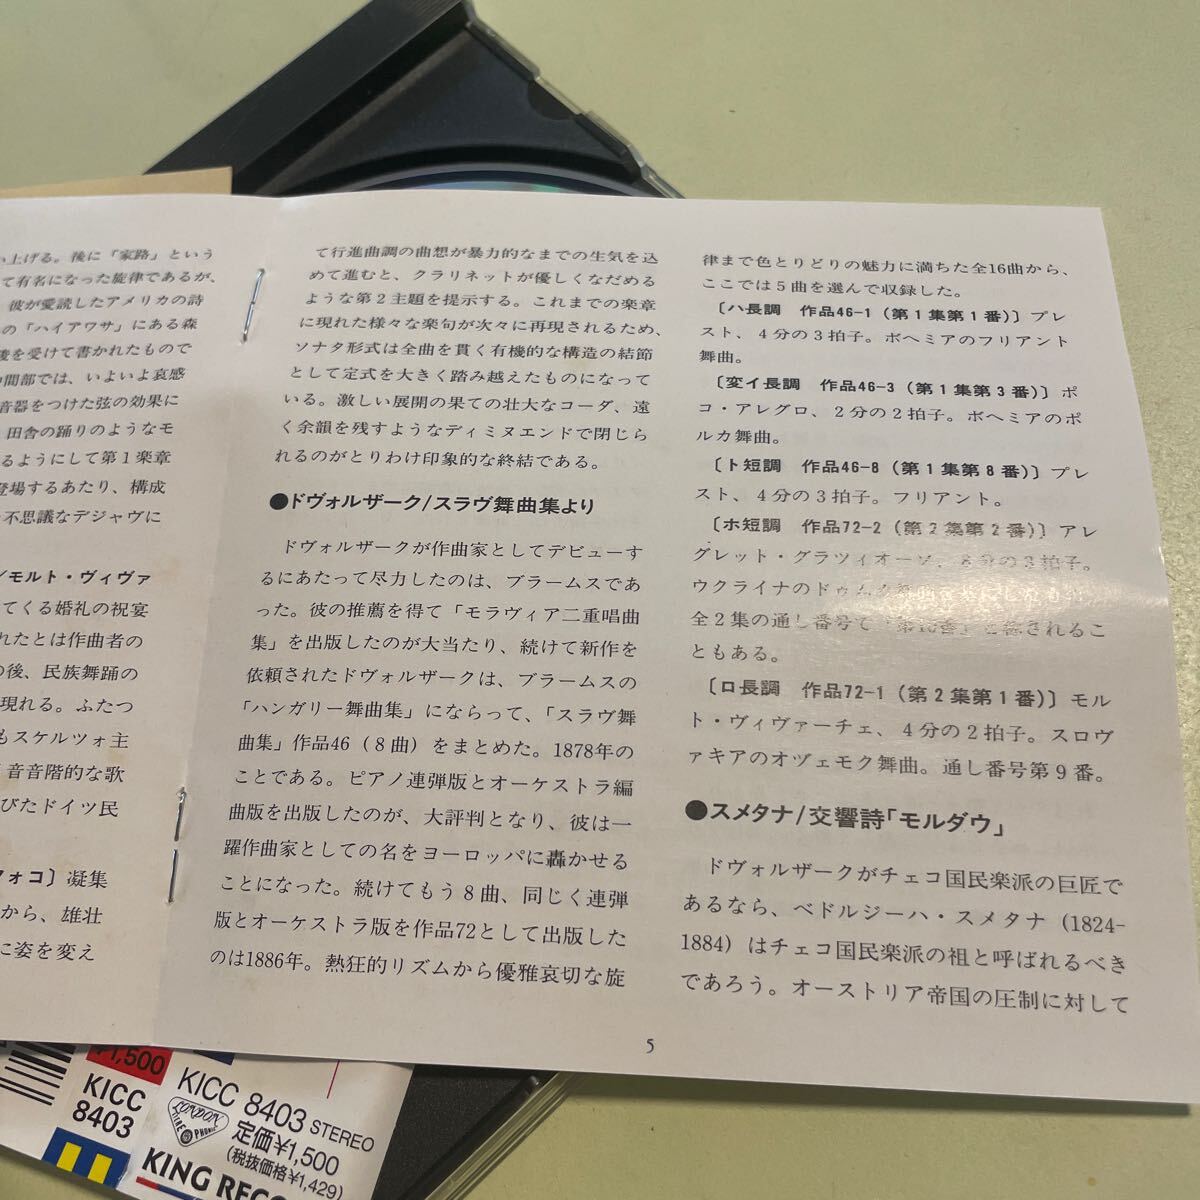 い上げる。後に「家路」という
て有名になった旋律であるが、
彼が愛読したアメリカの詩
の「ハイアワサ」にある森
を受けて書かれたもので
間部では、いよいよ哀感
音器をつけた弦の効果に
田舎の踊りのようなモ
るようにして第1楽章
登場するあたり、構成
不思議なデジャヴに
/モルト・ヴィヴァ
てくる婚礼の祝宴
れたとは作曲者の
の後、民族舞踊の
現れる。ふたつ
もスケルツォ主
音音階的な歌
びたドイツ民
ォコ〕凝集
から、雄壮
に姿を変え
て行進曲調の曲想が暴力的なまでの生気を込
めて進むと、クラリネットが優しくなだめる
ような第2主題を提示する。これまでの楽章
に現れた様々な楽句が次々に再現されるため、
ソナタ形式は全曲を貫く有機的な構造の結節
として定式を大きく踏み越えたものになって
いる。激しい展開の果ての壮大なコーダ、遠
く余韻を残すようなディミヌエンドで閉じら
れるのがとりわけ印象的な終結である。
●ドヴォルザーク/スラヴ舞曲集より
ドヴォルザークが作曲家としてデビューす
るにあたって尽力したのは、ブラームスであ
った。彼の推薦を得て「モラヴィア二重唱曲
集」を出版したのが大当たり、続けて新作を
依頼されたドヴォルザークは、ブラームスの
「ハンガリー舞曲集」にならって、「スラヴ舞
曲集」作品46（8曲）をまとめた。1878年の
ことである。ピアノ連弾版とオーケストラ編
曲版を出版したのが、大評判となり、彼は一
躍作曲家としての名をヨーロッパに轟かせる
ことになった。続けてもう8曲、同じく連弾
版とオーケストラ版を作品72として出版した
のは1886年。熱狂的リズムから優雅哀切な旋
律まで色とりどりの魅力に満ちた全16曲から、
ここでは5曲を選んで収録した。
〔ハ長調　作品46-1（第1集第1番）〕プレ
スト、4分の3拍子。ボヘミアのフリアント
舞曲。
〔変イ長調　作品46-3（第1集第3番）〕ポ
コ・アレグロ、2分の2拍子。ボヘミアのポ
ルカ舞曲。
〔ト短調　作品46-8（第1集第8番）〕プレ
スト、4分の3拍子。フリアント。
〔ホ短調　作品72-2（第2集第2番）〕アレ
グレット・グラツィオーソ、8分の3拍子。
ウクライナのドゥムカ
全2集の通し番号で「第10番」と記されるこ
ともある。
〔ロ長調　作品72-1（第2集第1番）〕モル
ト・ヴィヴァーチェ、4分の2拍子。スロヴ
ァキアのオヅェモク舞曲。通し番号第9番。
●スメタナ/交響詩「モルダウ」
ドヴォルザークがチェコ国民楽派の巨匠で
あるなら、ベドルジーハ・スメタナ（1824-
1884）はチェコ国民楽派の祖と呼ばれるべき
であろう。オーストリア帝国の圧制に対して
5
¥1,500
KICC
8403
KICC 8403 STEREO
LONDON
STEREO PHONIC
定価¥1,500
(税抜価格¥1,429)
KING RECO